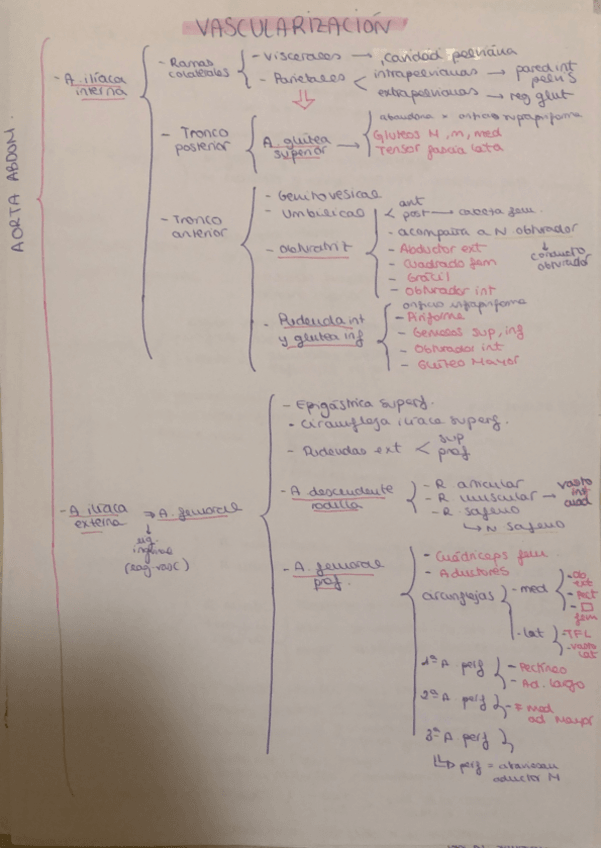 VASCULARIZACIÓN
AORTA ABDOM.
- A. ilíaca interna
- Ramas colaterales
- Viscerales → cavidad pelviana
- Parietales < intrapelvianas → pared int pelvis
extrapelvianas → reg glut
- Tronco posterior
A. glútea superior →
abandona x orificio suprapiriforme
Glúteos M, m, med
Tensor fascia lata
- Tronco anterior
- Genitovesical
- Umbilical
- Obturatriz
< ant
post → cabeza fem.
- acompaña a N obturador
↓ conducto obturador
- Abductor ext
- Cuadrado fem
- Grácil
- Obturador int
- Pudenda int y glútea inf
orificio infrapiriforme
- Piriforme
- Gemelos sup, inf
- Obturador int
- Glúteo Mayor
- A. ilíaca externa → A. femoral
↓
lig. inguinal
(lag. vasc)
- Epigástrica superf.
- Circunfleja ilíaca superf.
- Pudendas ext < sup
prof
- A. descendente rodilla
- R. articular
- R. muscular → vasto int cuad
- R. safeno
↳ N safeno
- A. femoral prof.
- Cuádriceps fem.
- Aductores
circunflejas
- med
- ob ext
- Pect
- □ fem
- lat
- TFL
- vasto lat
1ª A. perf
- Pectíneo
- Ad. largo
2ª A. perf
- F med
ad Mayor
3ª A. perf
↳ perf = atraviesan aductor M